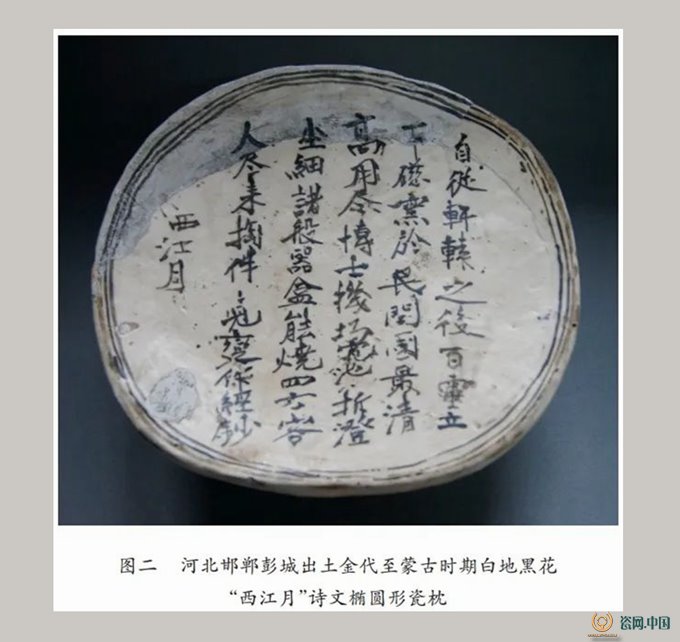 自從軒轅之後百靈立
下磁窯於民間国最清
高用尽博士機巧池拆澄
尘細諸般器盒能燒四方客
人尽来掏件〻児變作經鈔
西江月
图二 河北邯郸彭城出土金代至蒙古时期白地黑花
“西江月”诗文椭圆形瓷枕
瓷网.中国